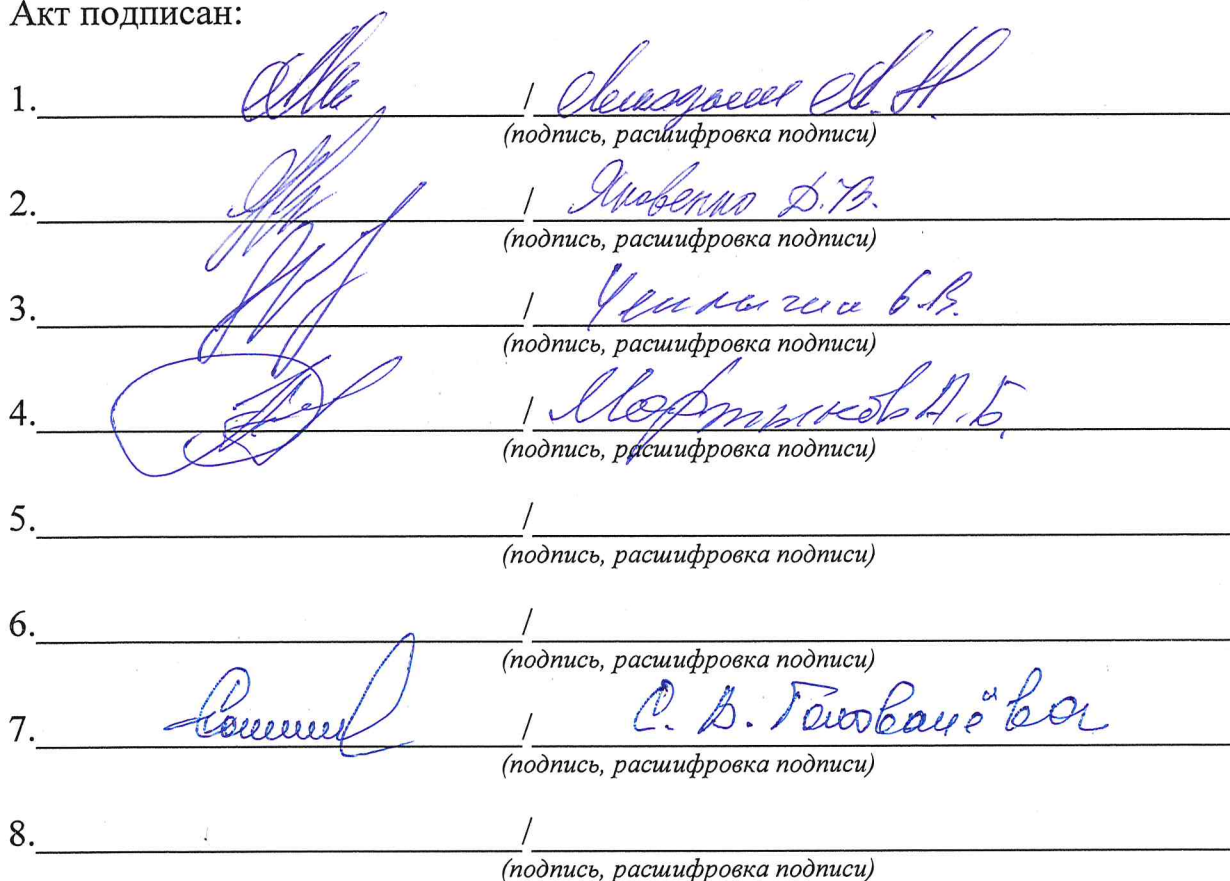 Акт подписан:
1. / А. Н.
(подпись, расшифровка подписи)
2. / Яковенко Д.В.
(подпись, расшифровка подписи)
3. / Б.В.
(подпись, расшифровка подписи)
4. / Мартынов А.Б.
(подпись, расшифровка подписи)
5. /
(подпись, расшифровка подписи)
6. /
(подпись, расшифровка подписи)
7. / С. В.
(подпись, расшифровка подписи)
8. /
(подпись, расшифровка подписи)